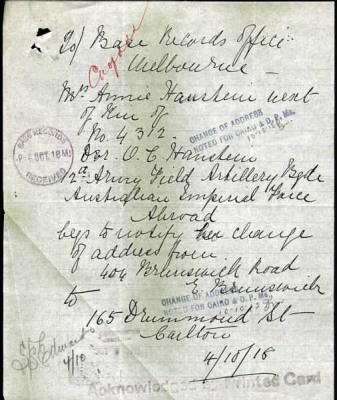 To/ Base Records Office
Melbourne
Mrs Annie Hanstein next
of Kin of
No. 4312.
Dvr. O. C. Hanstein
2nd Army Field Artillery Bgde
Australian Imperial Force
Abroad
begs to notify her change
of address from
404 Brunswick Road
E. Brunswick
to
165 Drummond St
Carlton
4/10/18
BASE RECORDS
OCT. 18
RECEIVED
CHANGE OF ADDRESS
NOTED FOR CAIRO & D. P. Ms.
CHANGE OF ADDRESS
NOTED FOR CAIRO & D. P. Ms.
Edwards
4/10
Acknowledged by Printed Card